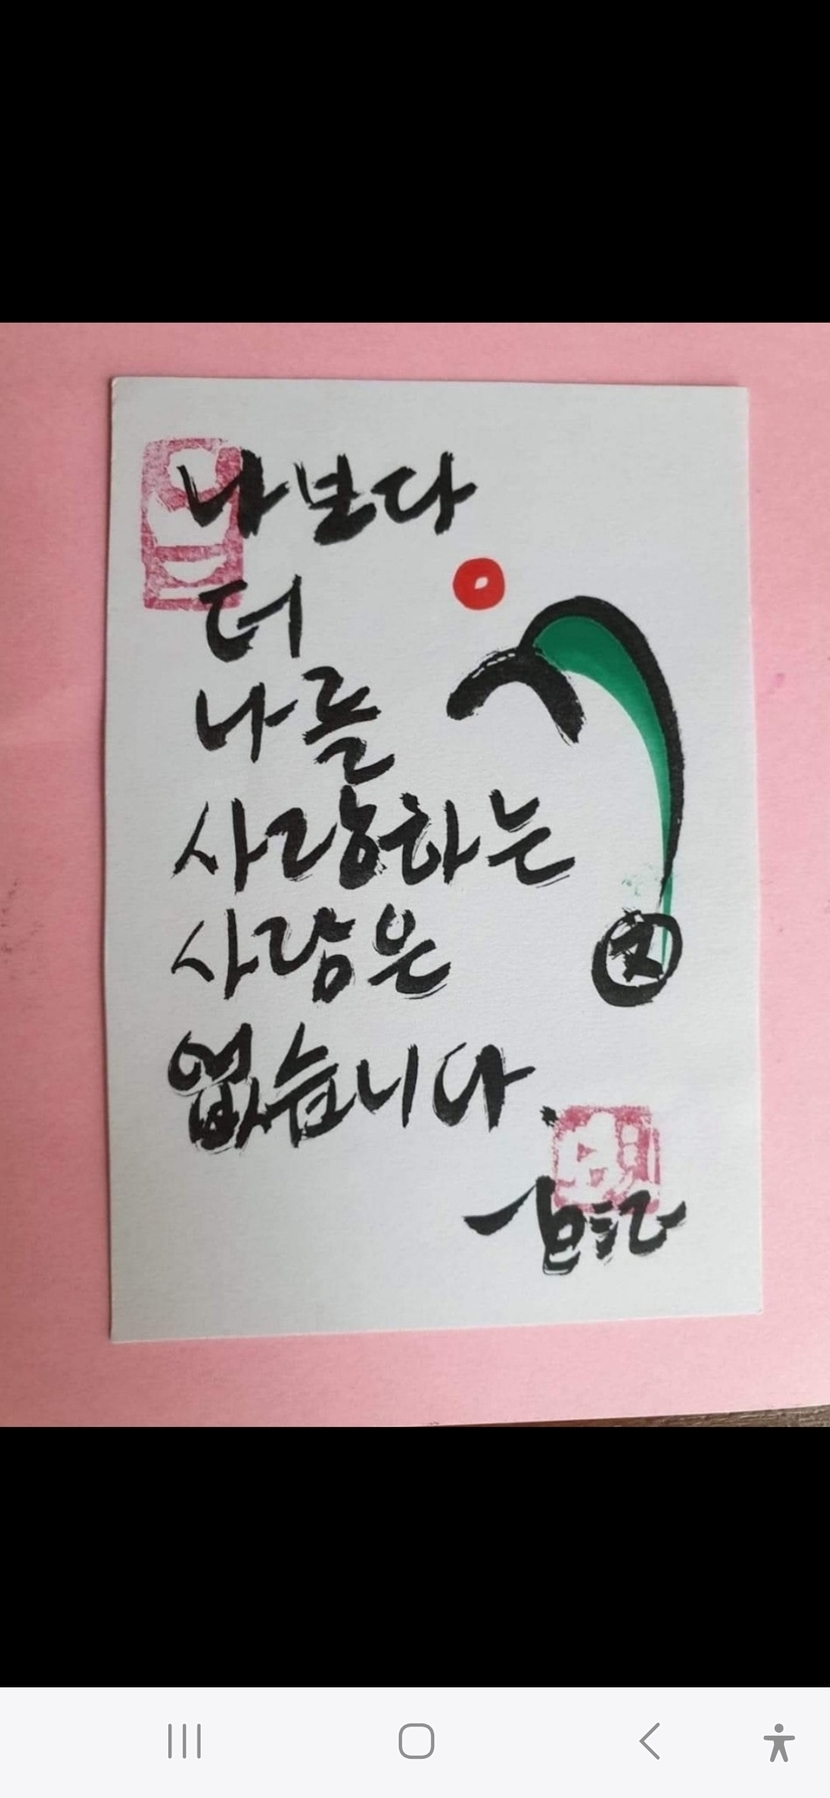 나보다
더
나를
사랑하는
사람은
없습니다